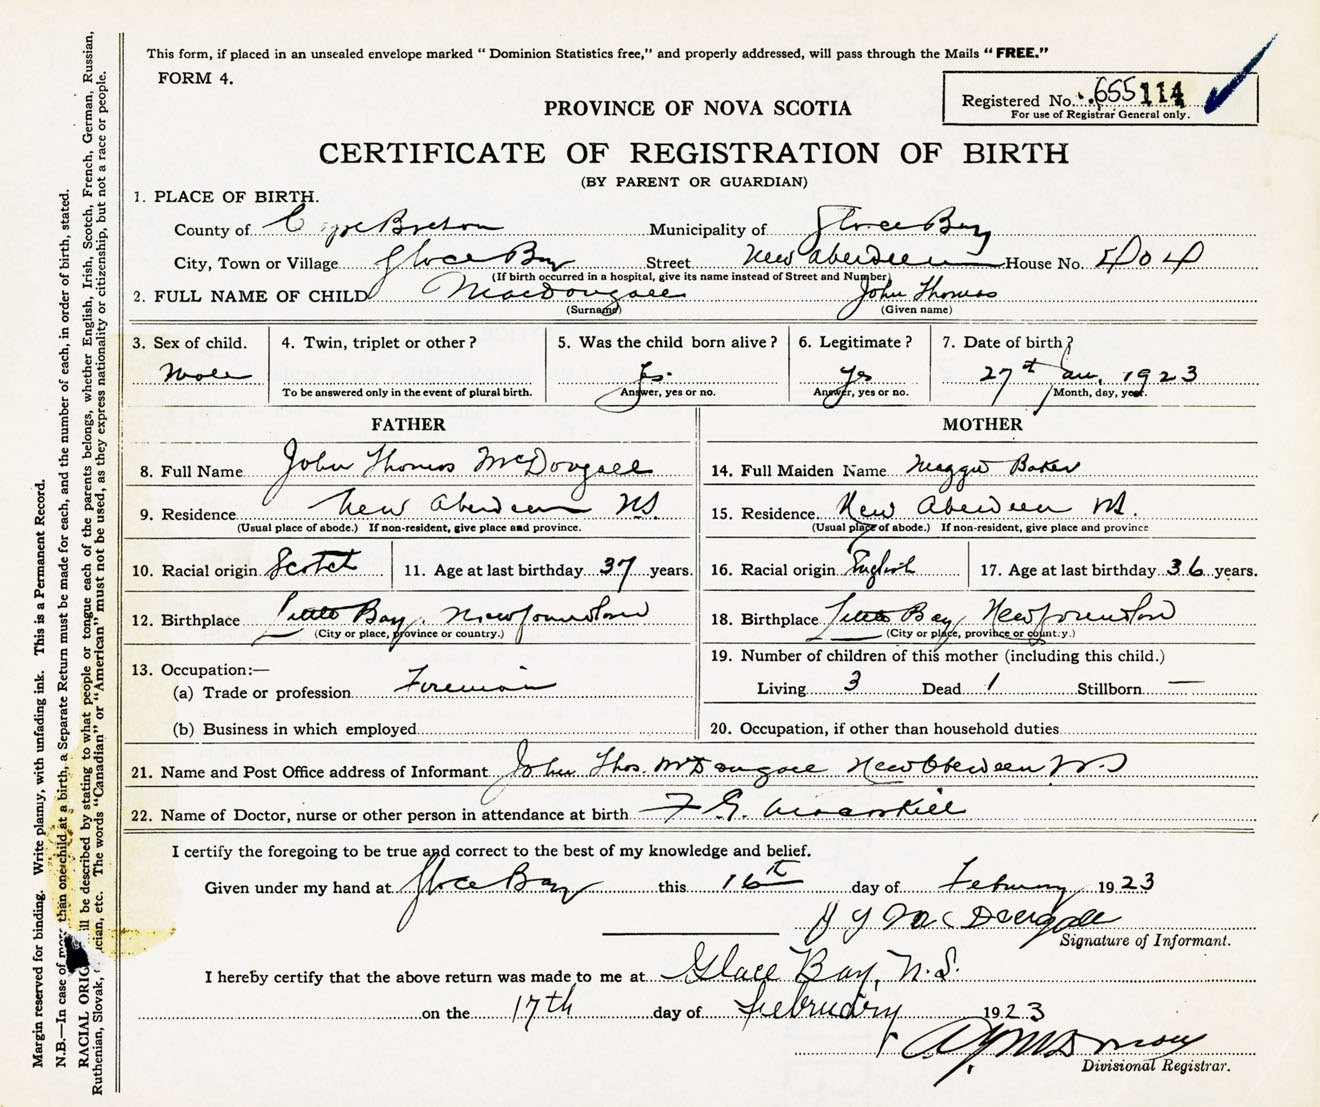 This form, if placed in an unsealed envelope marked “ Dominion Statistics free,” and properly addressed, will pass through the Mails “ FREE.”
FORM 4.
Registered No. 655114
For use of Registrar General only.
PROVINCE OF NOVA SCOTIA
CERTIFICATE OF REGISTRATION OF BIRTH
(BY PARENT OR GUARDIAN)
1. PLACE OF BIRTH.
County of Cape Breton Municipality of Glace Bay
City, Town or Village Glace Bay Street New Aberdeen House No.
(If birth occurred in a hospital, give its name instead of Street and Number)
2. FULL NAME OF CHILD MacDougall John Thomas
(Surname) (Given name)
3. Sex of child. 4. Twin, triplet or other? 5. Was the child born alive? 6. Legitimate? 7. Date of birth?
Male Yes. Yes 27th Jan, 1923
To be answered only in the event of plural birth. Answer, yes or no. Answer, yes or no. Month, day, year.
FATHER MOTHER
8. Full Name John Thomas McDougall 14. Full Maiden Name Maggie Baker
9. Residence New Aberdeen NS. 15. Residence. New Aberdeen NS.
(Usual place of abode.) If non-resident, give place and province. (Usual place of abode.) If non-resident, give place and province
10. Racial origin Scotch 11. Age at last birthday 37 years. 16. Racial origin English 17. Age at last birthday 36 years.
12. Birthplace Little Bay, Newfoundland 18. Birthplace Little Bay Newfoundland
(City or place, province or country.) (City or place, province or country.)
13. Occupation:— 19. Number of children of this mother (including this child.)
(a) Trade or profession Foreman Living 3 Dead 1 Stillborn —
(b) Business in which employed 20. Occupation, if other than household duties
21. Name and Post Office address of Informant John Thos. McDougall New Aberdeen N.S
22. Name of Doctor, nurse or other person in attendance at birth
I certify the foregoing to be true and correct to the best of my knowledge and belief.
Given under my hand at Glace Bay this 16th day of February 1923
J T MacDougall
Signature of Informant.
I hereby certify that the above return was made to me at Glace Bay, N.S.
on the 17th day of February 1923
Divisional Registrar.
Margin reserved for binding. Write plainly, with unfading ink. This is a Permanent Record.
N.B.—In case of more than one child at a birth, a Separate Return must be made for each, and the number of each, in order of birth, stated.
RACIAL ORIG ill be described by stating to what people or tongue each of the parents belongs, whether English, Irish, Scotch, French, German, Russian,
Ruthenian, Slovak, ician, etc. The words “Canadian” or “American” must not be used, as they express nationality or citizenship, but not a race or people.